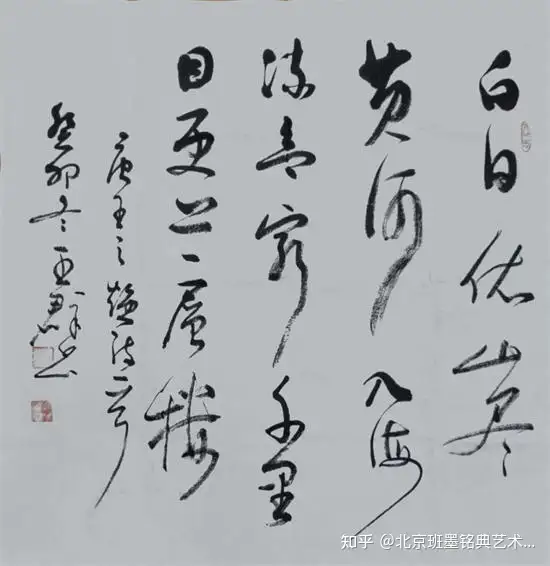 白日依山尽
黄河入海
流欲穷千里
目更上一層楼
唐王之涣诗一首
癸卯冬王書
知乎 @北京班墨铭典艺术...